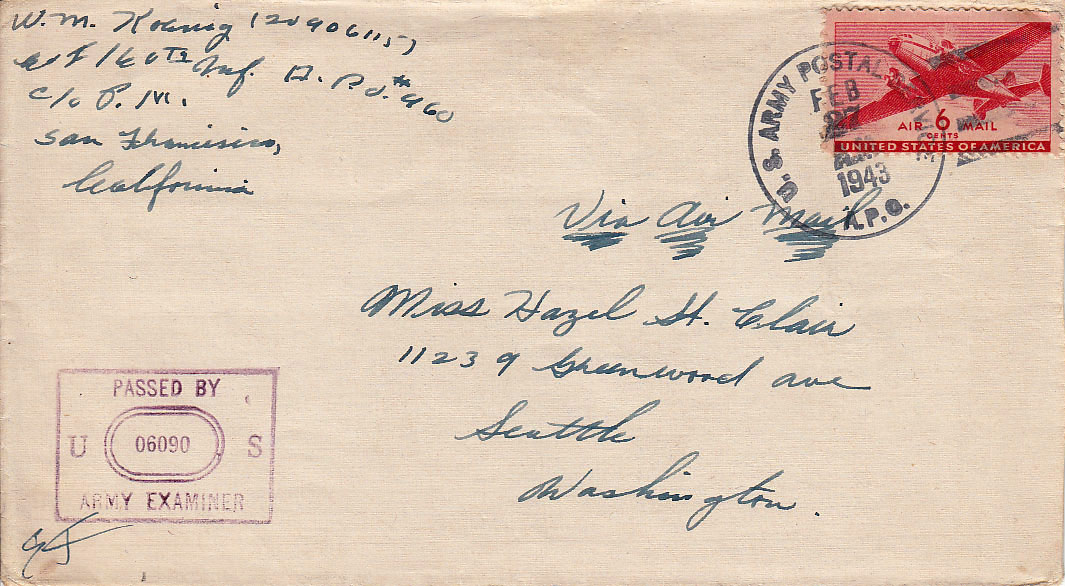 W. M. Koenig (20906115)
Co F 160th Inf. A. P.O. #960
c/o P. M.
San Francisco,
California
U. S. ARMY POSTAL SERVICE
FEB
27
1943
A.P.O.
AIR 6 MAIL
CENTS
UNITED STATES OF AMERICA
Via Air Mail
Miss Hazel St. Clair
11239 Greenwood ave
Seattle
Washington.
PASSED BY
U 06090 S
ARMY EXAMINER